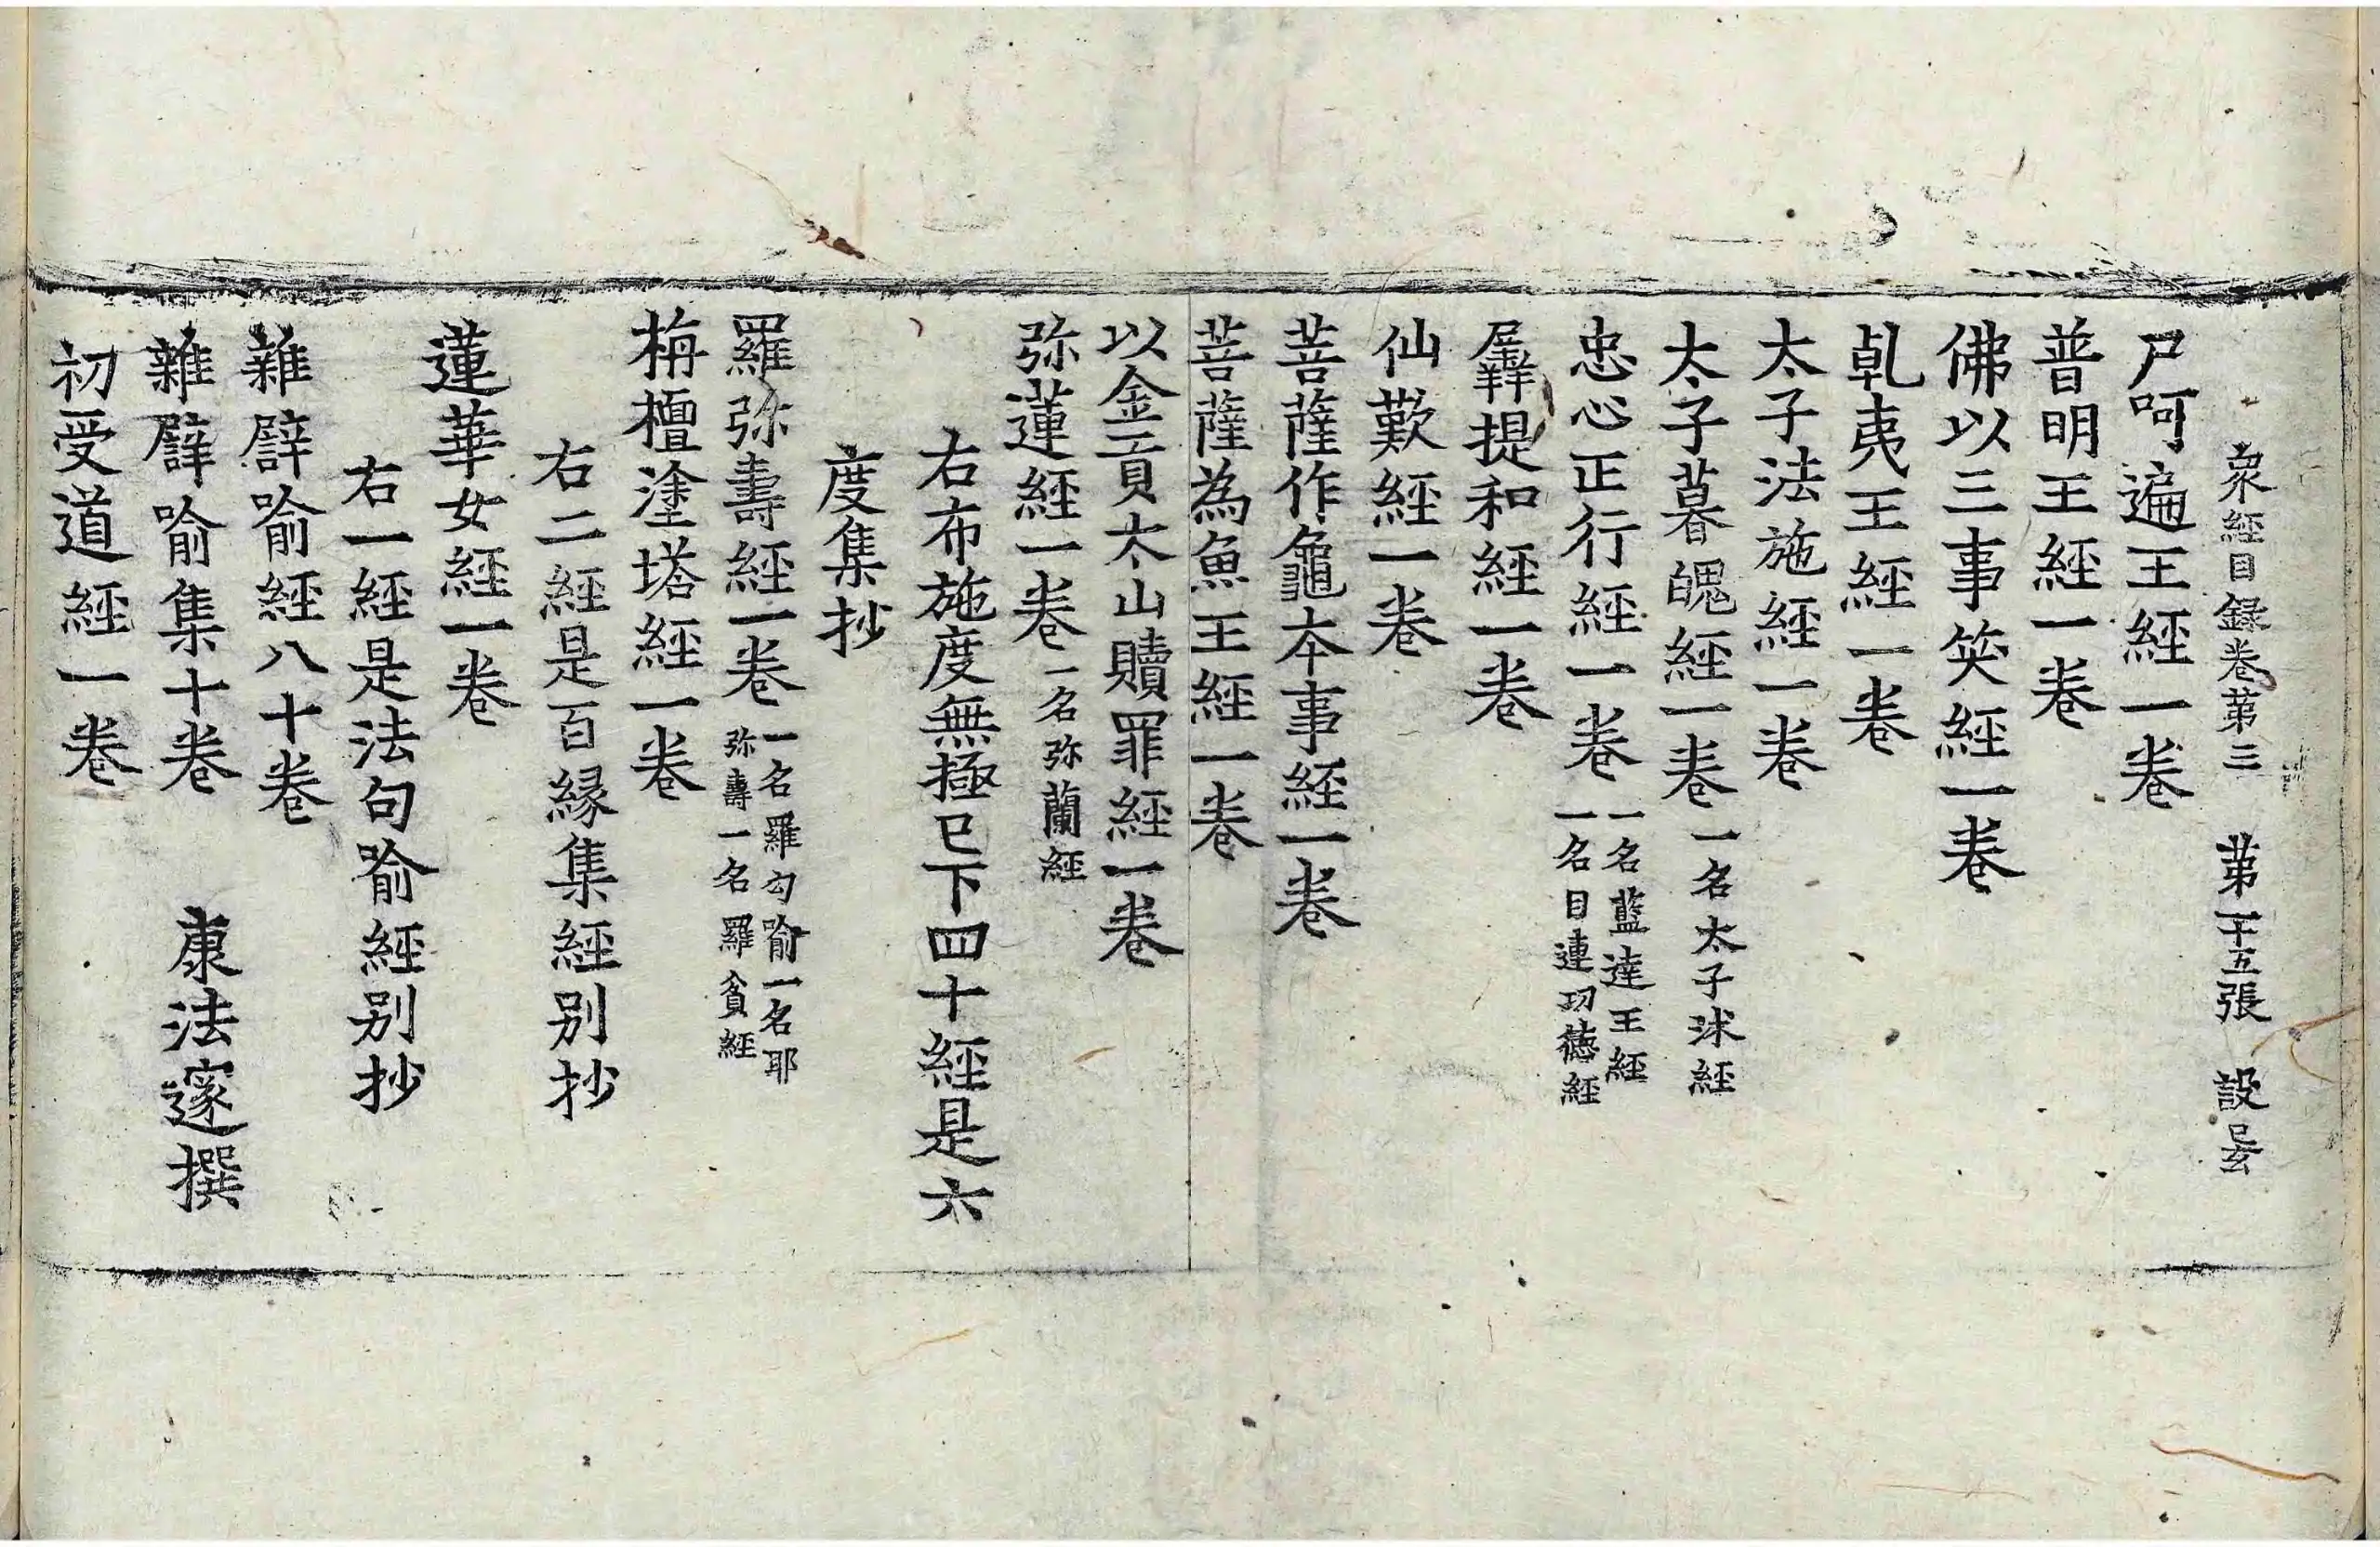 衆經目録卷第三 第二十五張 設
尸呵遍王經一卷
普明王經一卷
佛以三事笑經一卷
乹夷王經一卷
太子法施經一卷
太子暮魄經一卷 一名太子沐經
忠心正行經一卷 一名藍達王經
一名目連功德經
羼提和經一卷
仙歎經一卷
菩薩作龜本事經一卷
菩薩為魚王經一卷
以金貢太山贖罪經一卷
弥蓮經一卷 一名弥蘭經
右布施度無極已下四十經是六
度集抄
羅弥壽經一卷 一名羅勾喻一名耶
弥壽一名羅貧經
栴檀塗塔經一卷
右二經是百緣集經别抄
蓮華女經一卷
右一經是法句喻經别抄
雜譬喻經八十卷
雜譬喻集十卷 康法邃撰
初受道經一卷